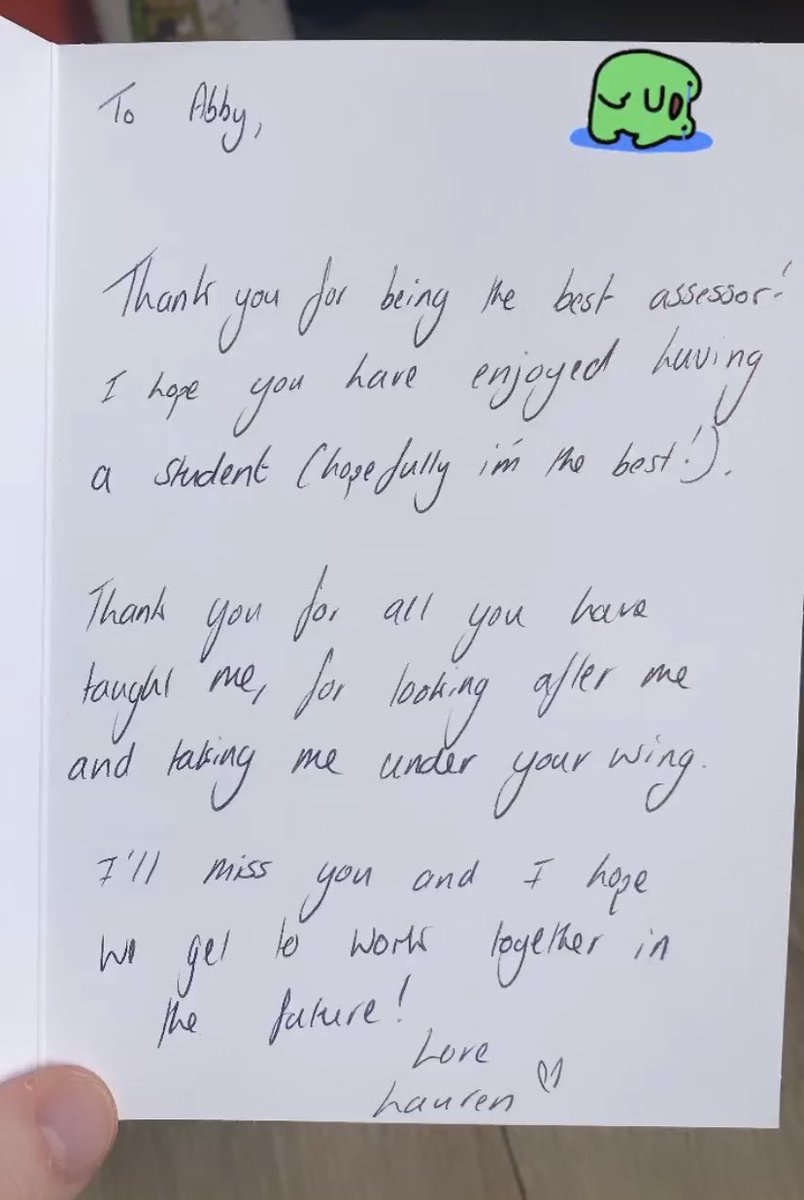 To Abby,
Thank you for being the best assessor!
I hope you have enjoyed having
a student (hopefully i'm the best!).
Thank you for all you have
taught me, for looking after me
and taking me under your wing.
I'll miss you and I hope
we get to work together in
the future!
Love
Lauren